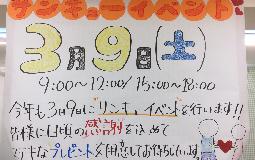 サンキューイベント
3月9日(土)
9:00〜12:00/15:00〜18:00
今年も3月9日に"サンキューイベント"を行います!!
皆様に日頃の感謝を込めて
ステキなプレゼントを用意してお待ちしています